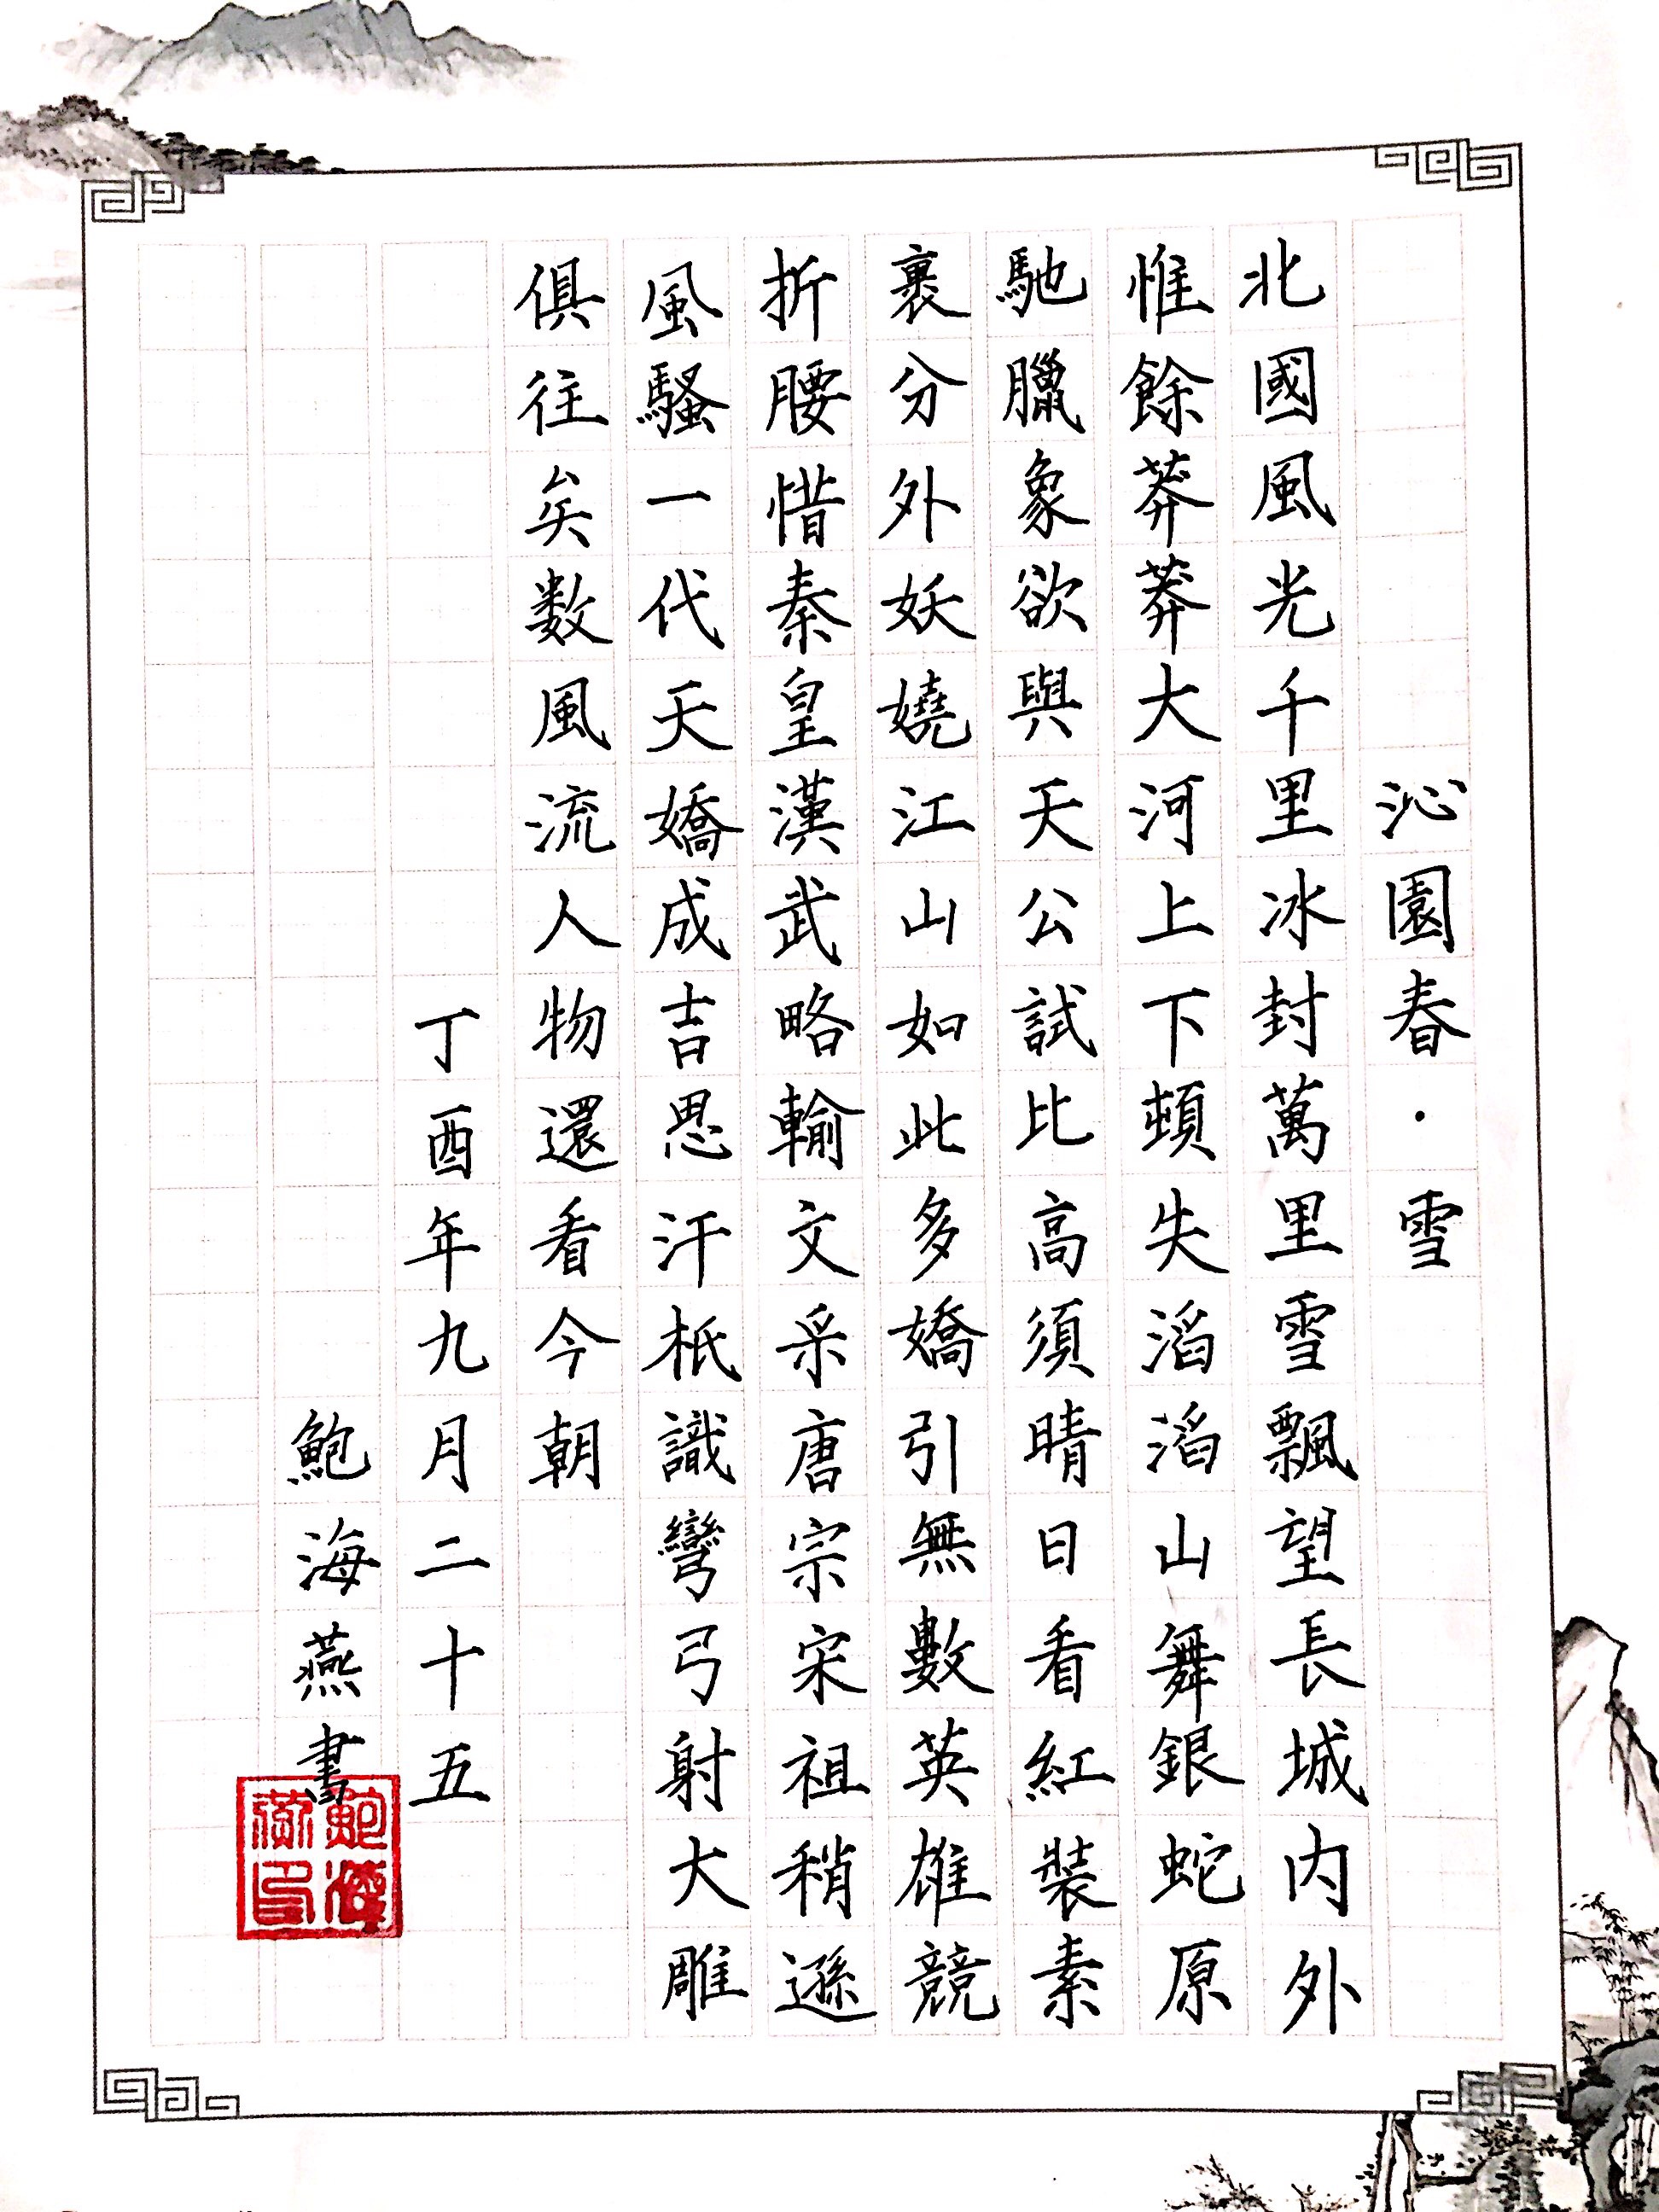 沁園春·雪
北國風光千里冰封萬里雪飄望長城内外
惟餘莽莽大河上下頓失滔滔山舞銀蛇原
馳臘象欲與天公試比高須晴日看紅裝素
裹分外妖嬈江山如此多嬌引無數英雄競
折腰惜秦皇漢武略輸文采唐宗宋祖稍遜
風騷一代天嬌成吉思汗枳識彎弓射大雕
俱往矣数風流人物還看今朝
丁酉年九月二十五
鮑海燕書
鮑海燕印